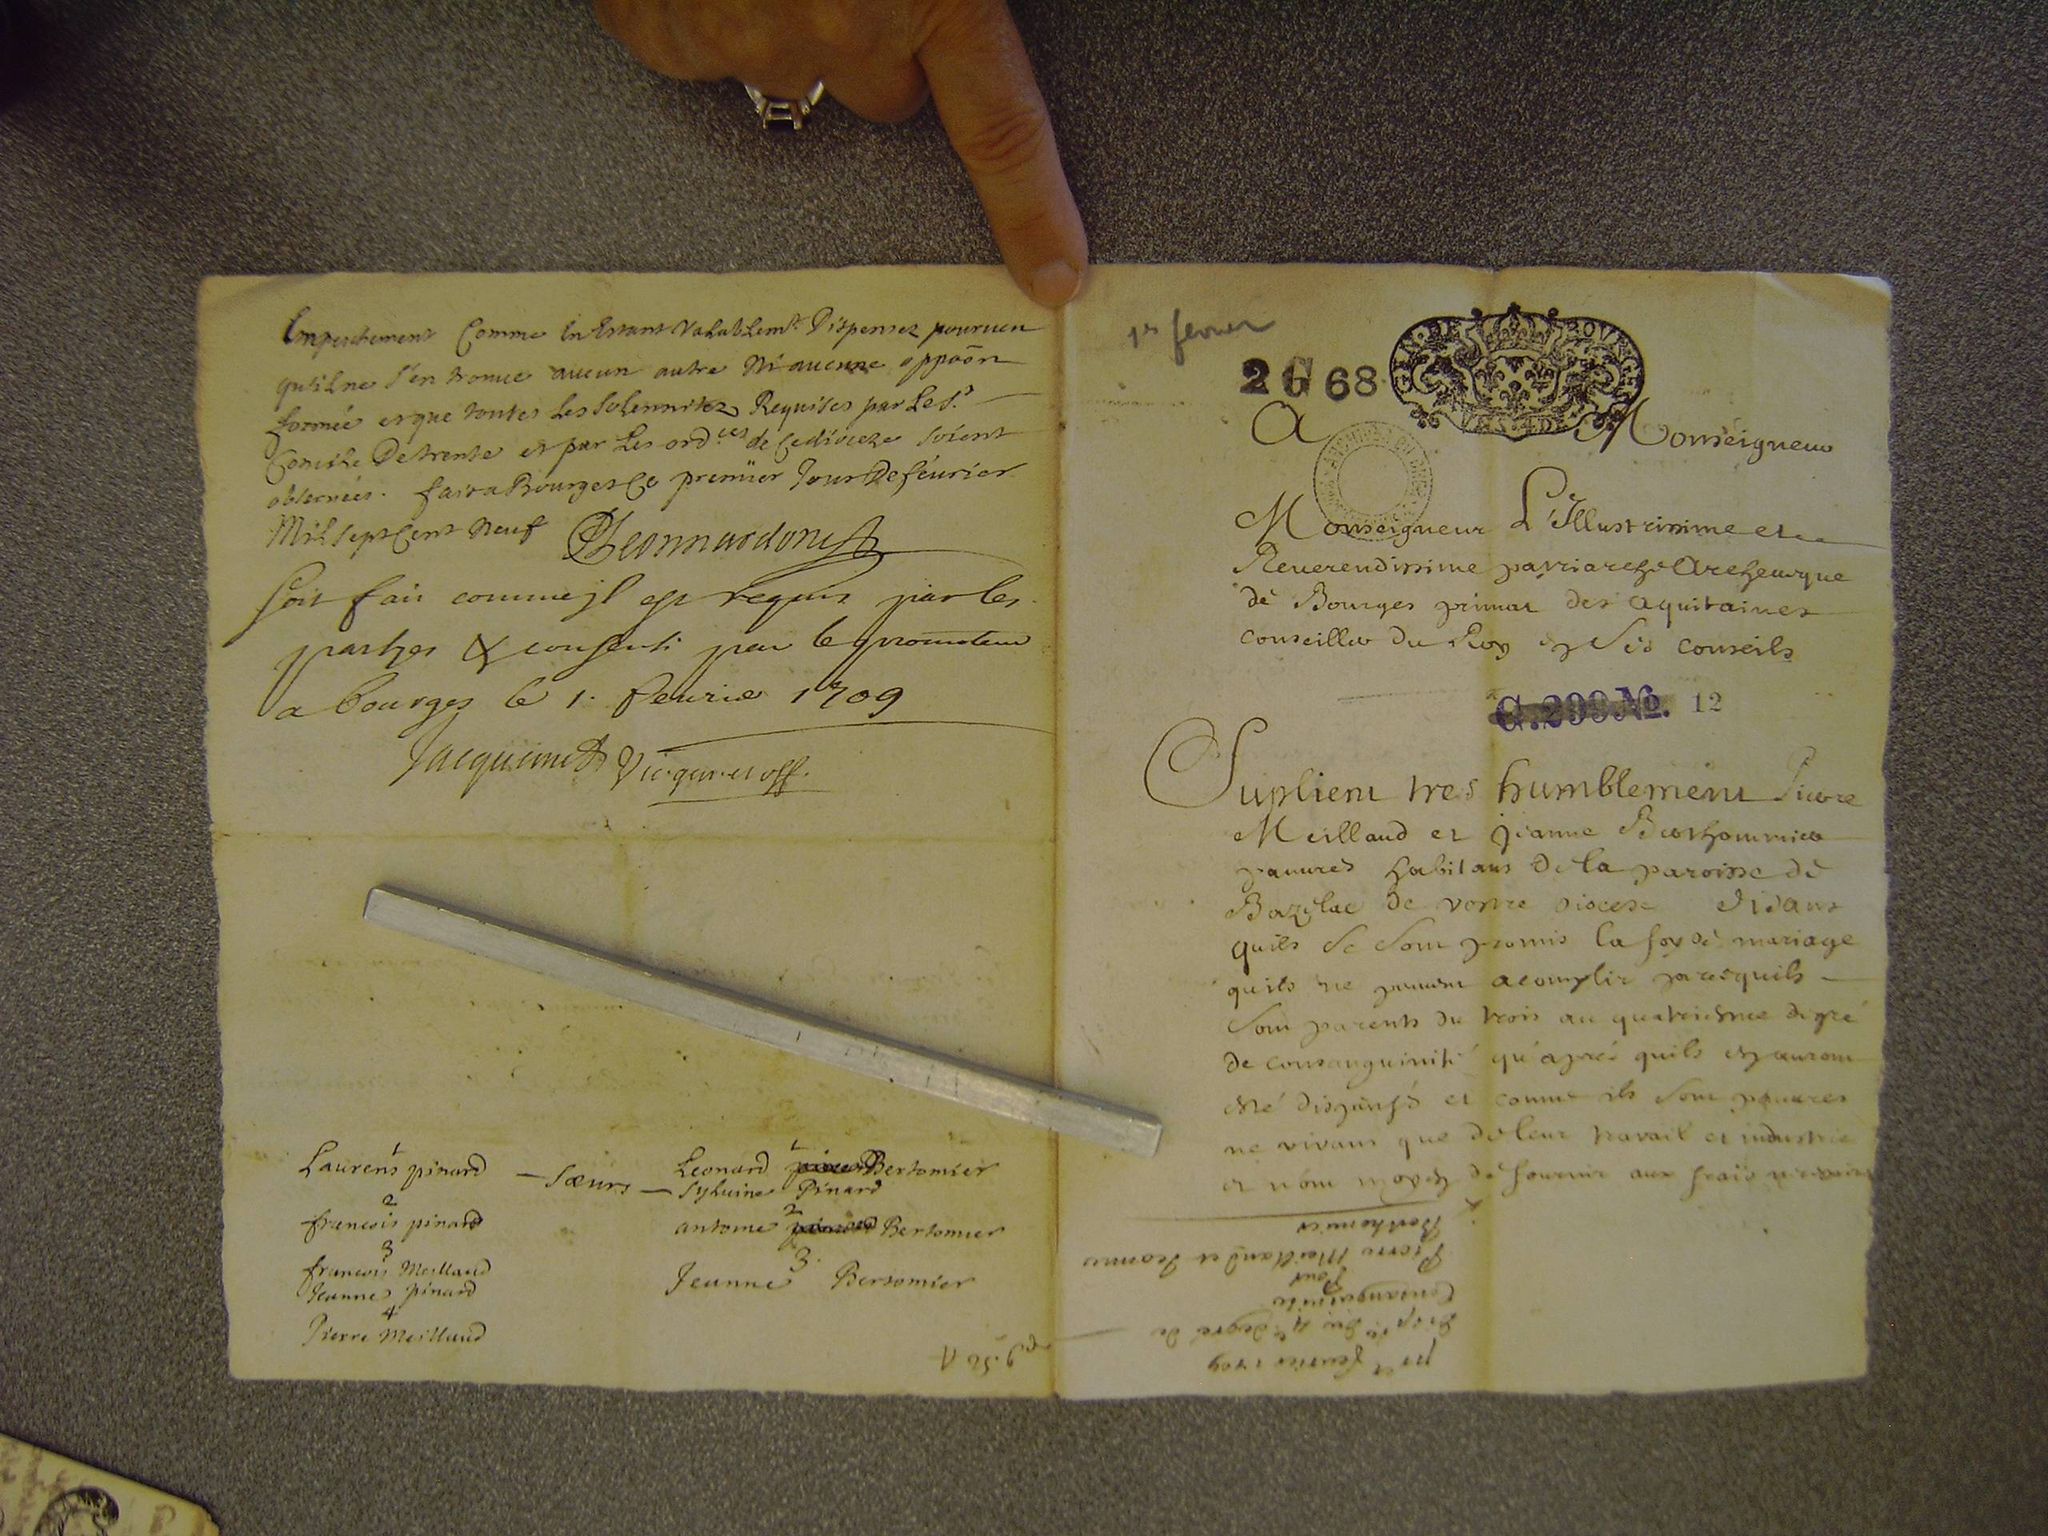 Empeschement Comme En Estant Valablemt. Dispensez pourueu
qu'il ne s'en trouue aucun autre Ni aucune oppoõn
formée et que toutes Les Solennitez Requises par Le St.
Concile De trente et par Les ordces de Ce dioceze soient
obseruées. fait a Bourges Ce premier Jour De féurier
Mil sept Cent Neuf
Soit fait comme jl est requis par les
partyes & consenti par le promoteur
a bourges le 1. feurier 1709
Jacquemet Vic. gnr. et off.
1
Laurens pinard — Sœurs — Leonard Bertomier
Syluine Pinard
2
francois pinard
2
antoine pinard Bertomier
3
francois Meillaud
Jeanne pinard
3.
Jeanne Bertomier
4
Pierre Meillaud
1er fevrier
2 G 68
GEN. DE BOVRGES
A Monseigneur
Monseigneur L'Illustrissime et
Reuerendissime patriarche Archeuesque
de Bourges primat des aquitaines
conseiller du Roy en Ses conseils
G. 299 No. 12
Suplient tres humblement Pierre
Meillaud et Jeanne Berthommier
pauures habitans de la paroisse de
Bazelac de vostre diocese disans
quils se sont promis la foy de mariage
quils ne peuuent acomplir parcequils
sont parents du trois au quatriesme degré
de consanguinité qu'aprés quils en auront
esté dispensés et comme ils sont pauures
ne vivans que de leur travail et industrie
et n'ont moyen de fournir aux frais necessaires
pr. feurier 1709
Dispce du 4e degré de
Consanguinité
Pour
Pierre Meillaud et Jeanne
Berthomier